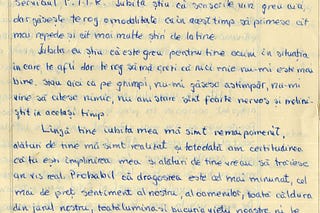 serviciul T.T.R. Iubita știu că scrisorile vin greu aici,
dar găsește te rog o modalitate ca în acest timp să primesc cît
mai repede și cît mai multe știri de la tine.
Iubita eu știu că este greu pentru tine acum în situația
în care te afli dar te rog să mă crezi că nici mie nu-mi este mai
bine. Stau aici ca pe ghimpi, nu-mi găsesc astîmpăr, nu-mi
vine să citesc nimic, nu am stare sînt foarte nervos și neliniș-
tit în același timp.
Lîngă tine iubita mea mă simt nemaipomenit,
alături de tine mă simt realizat și totodată am certitudinea
că tu ești împlinirea mea și alături de tine vreau să trăiesc
un vis real. Probabil că dragostea este cel mai minunat, cel
mai de preț sentiment al nostru, al oamenilor, toată căldura
din jurul nostru, toată lumina și bucuria vieții noastre ni le